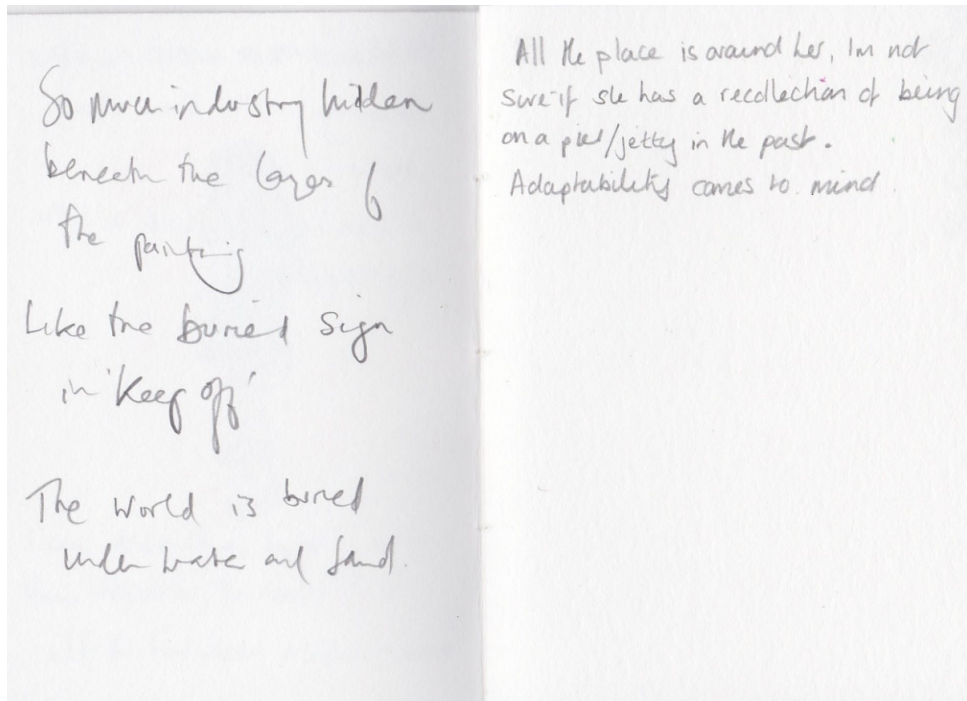 So much industry hidden
beneath the layers of
the painting
Like the buried sign
in 'Keep off'
The world is buried
under water and sand.
All the place is around her, Im not
sure if she has a recollection of being
on a pier/jetty in the past.
Adaptability comes to mind.